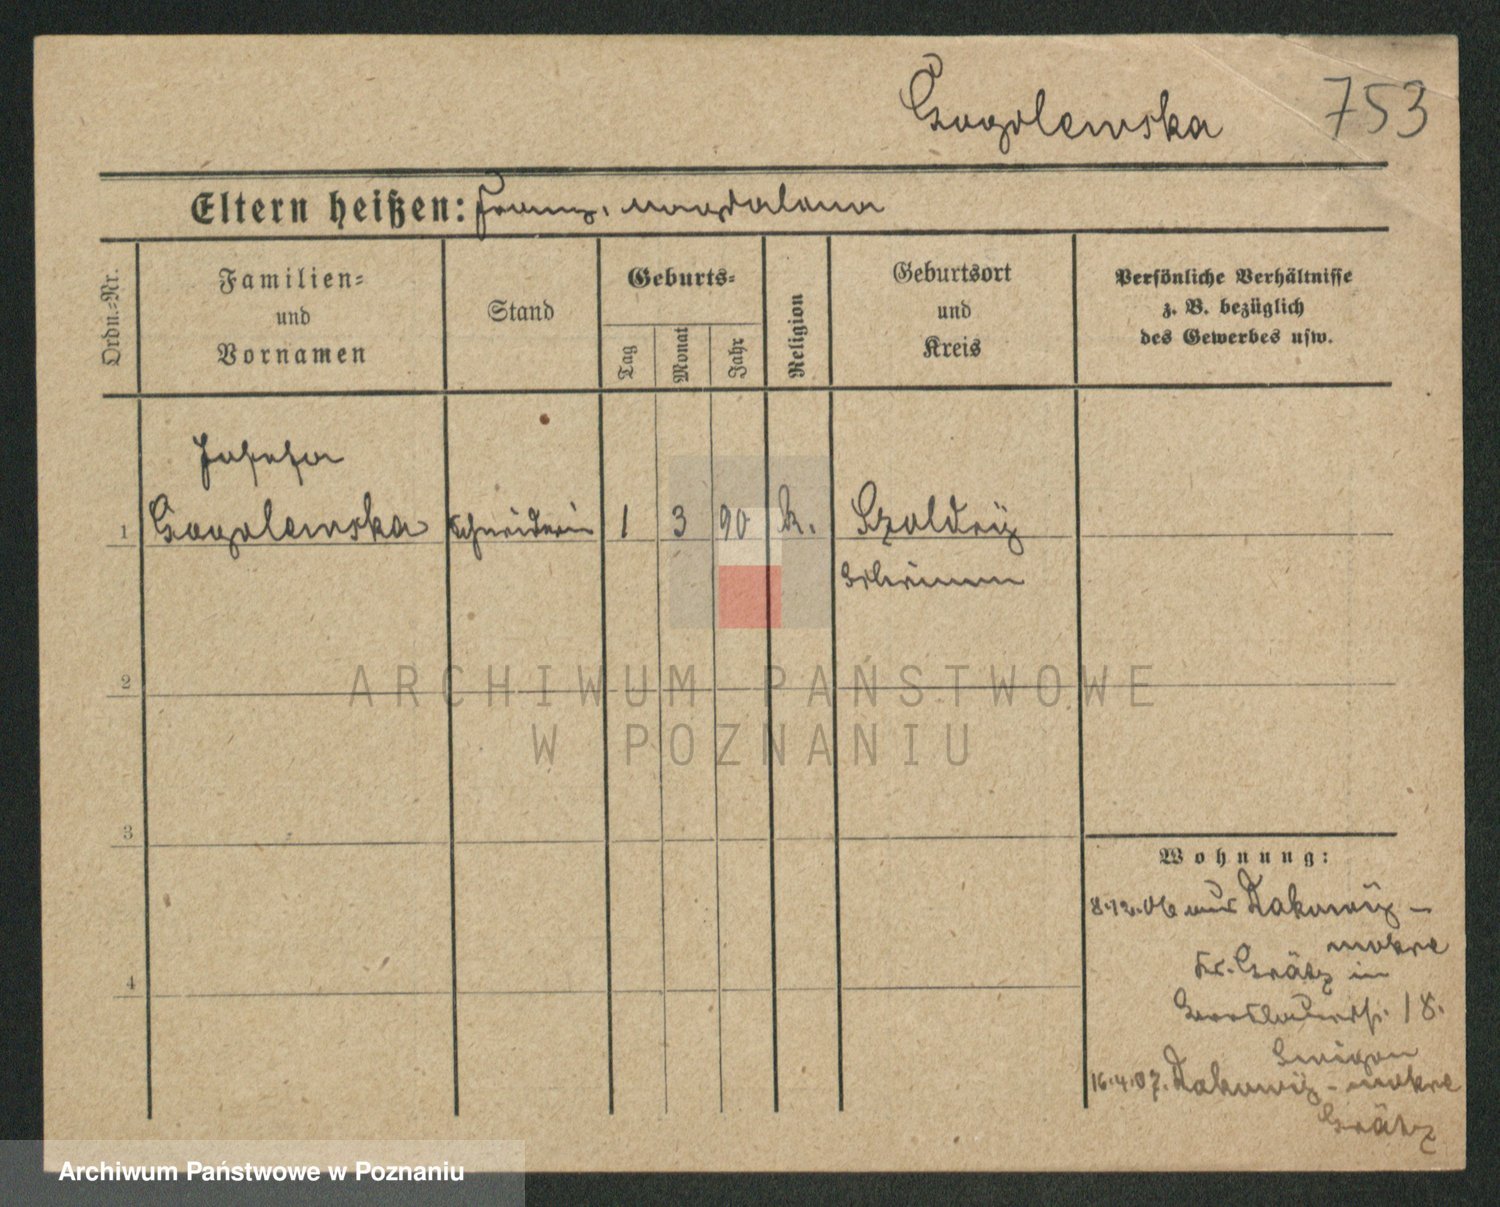 Gogolewska 753
Eltern heißen: Franz, Magdalena
Ordn.-Nr.
Familien-
und
Vornamen
Stand
Geburts-
Tag
Monat
Jahr
Religion
Geburtsort
und
Kreis
Persönliche Verhältnisse
z. B. bezüglich
des Gewerbes usw.
Josefa
1 Gogolewska Schneiderin 1 3 90 k. Szoldry
Schrimm
2
ARCHIWUM PAŃSTWOWE
W POZNANIU
3
Wohnung:
8.12.06 aus Dakowy-
mokre
Kr. Grätz in
18.
4
16.4.07. Dakowy-mokre
Grätz
Archiwum Państwowe w Poznaniu